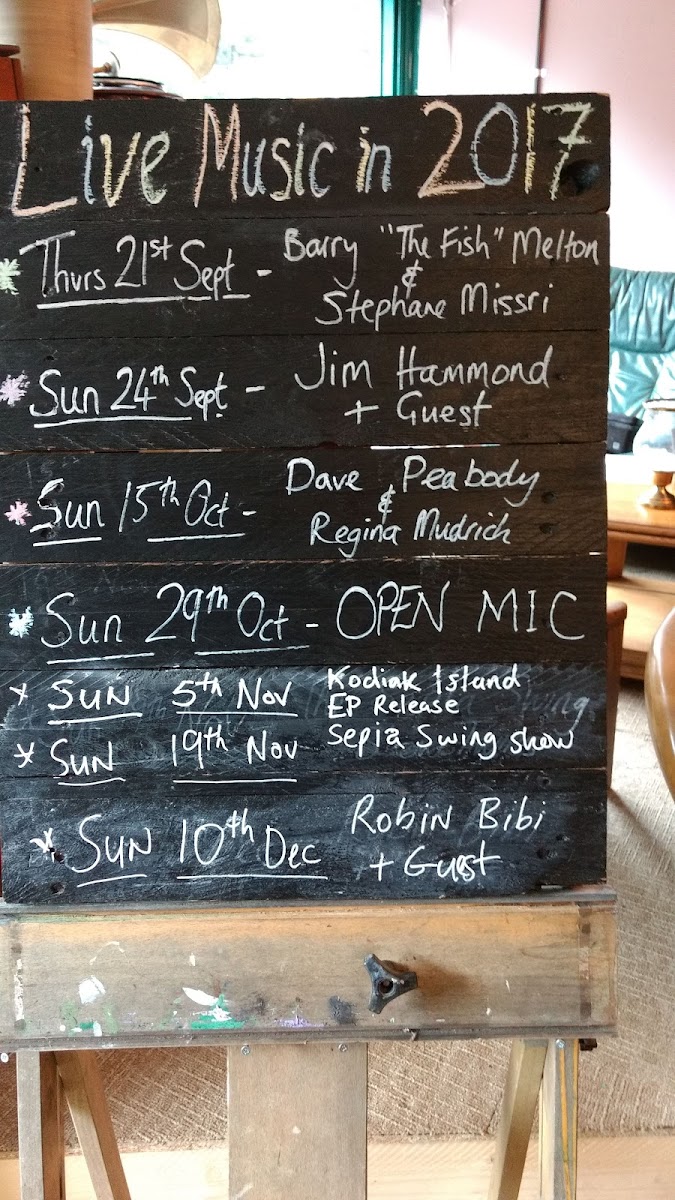 Live Music in 2017
Thurs 21st Sept - Barry "The Fish" Melton
&
Stephane Missri
Sun 24th Sept - Jim Hammond
+ Guest
Sun 15th Oct - Dave Peabody
&
Regina Mudrich
Sun 29th Oct - OPEN MIC
SUN 5th Nov Kodiak Island
EP Release
SUN 19th Nov Sepia Swing show
SUN 10th Dec Robin Bibi
+ Guest